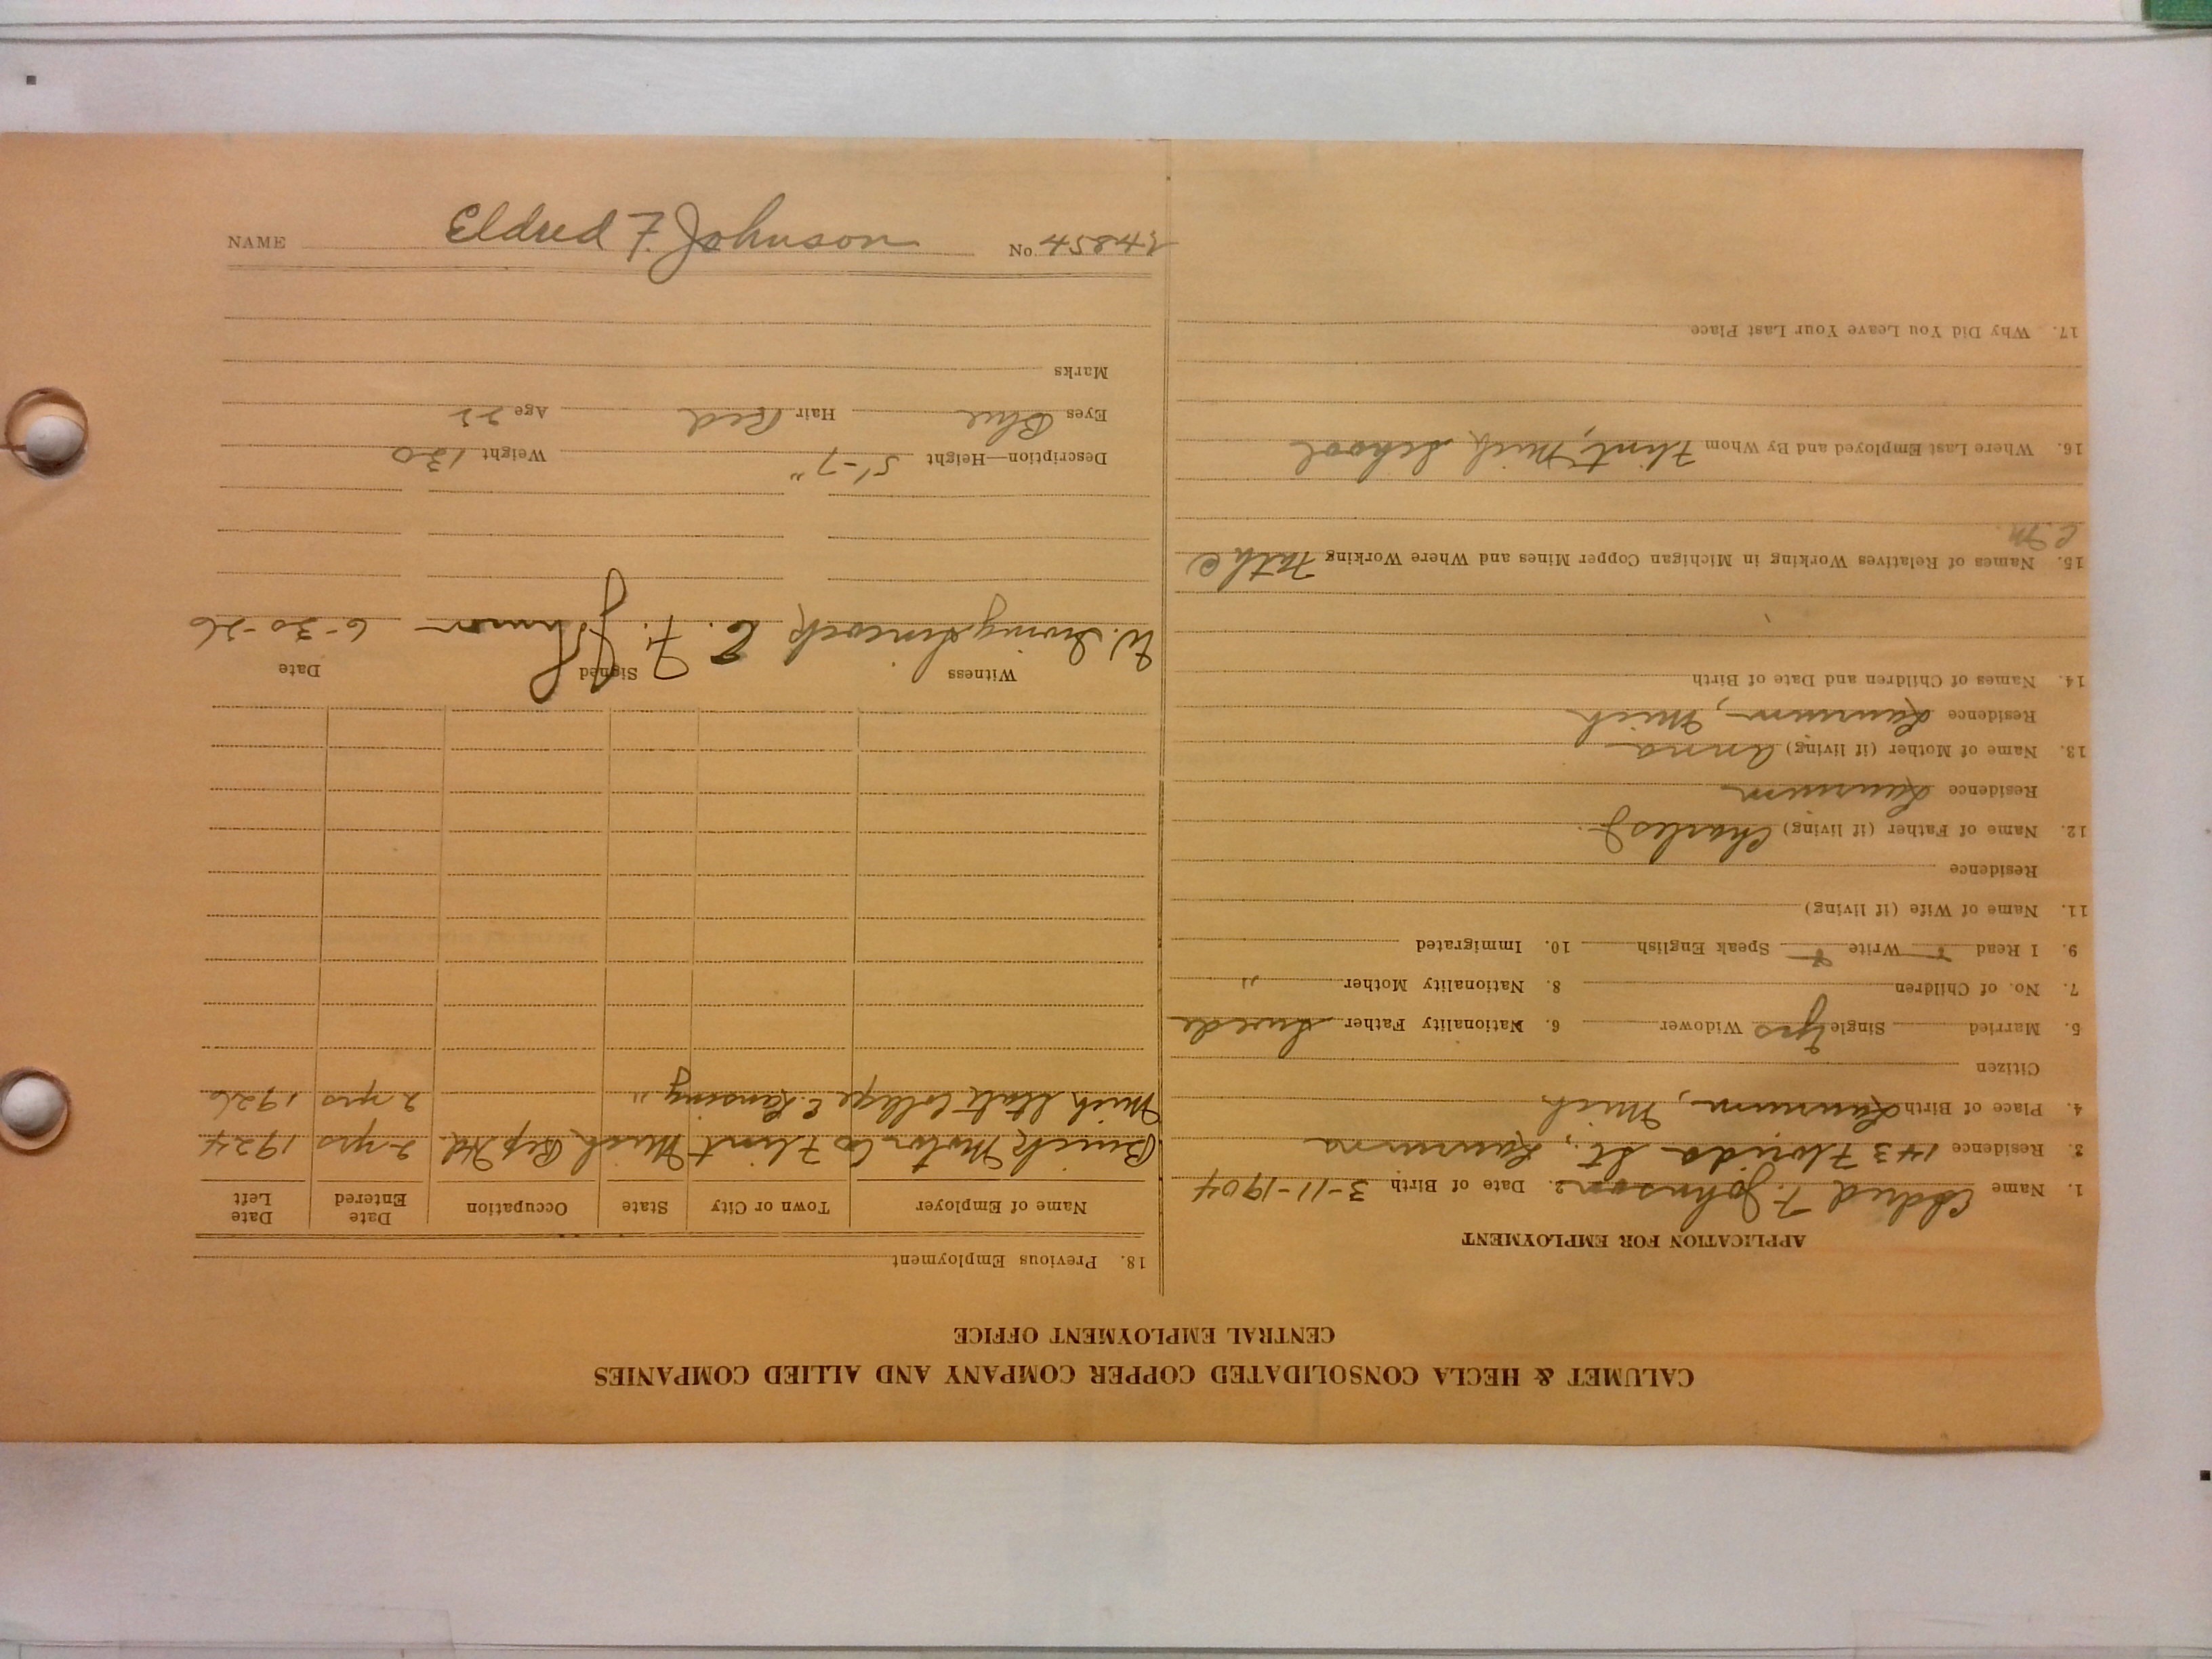 NAME Eldred F. Johnson No. 45842
CALUMET & HECLA CONSOLIDATED COPPER COMPANY AND ALLIED COMPANIES
CENTRAL EMPLOYMENT OFFICE
APPLICATION FOR EMPLOYMENT
1. Name Eldred F. Johnson 2. Date of Birth 3-11-1904
3. Residence 143 Florida St., Laurium
4. Place of Birth Laurium, Mich
Citizen
5. Married Single Yes Widower 6. Nationality Father Swede
7. No. of Children 8. Nationality Mother "
9. I Read Write Speak English 10. Immigrated
11. Name of Wife (if living)
Residence
12. Name of Father (if living) Charles J.
Residence Laurium
13. Name of Mother (if living) Anna
Residence Laurium, Mich
14. Names of Children and Date of Birth
15. Names of Relatives Working in Michigan Copper Mines and Where Working Fath C
C. M.
16. Where Last Employed and By Whom Flint, Mich School
17. Why Did You Leave Your Last Place
18. Previous Employment
Name of Employer Town or City State Occupation Date Entered Date Left
Buick Motor Co Flint Mich Rep Hd. 2 yrs 1924
Mich State College E. Lansing " 2 yrs 1926
Witness Signed Date
W. Irving E. F. Johnson 6-30-26
Description—Height 5'-7" Weight 130
Eyes Blue Hair Red Age 22
Marks